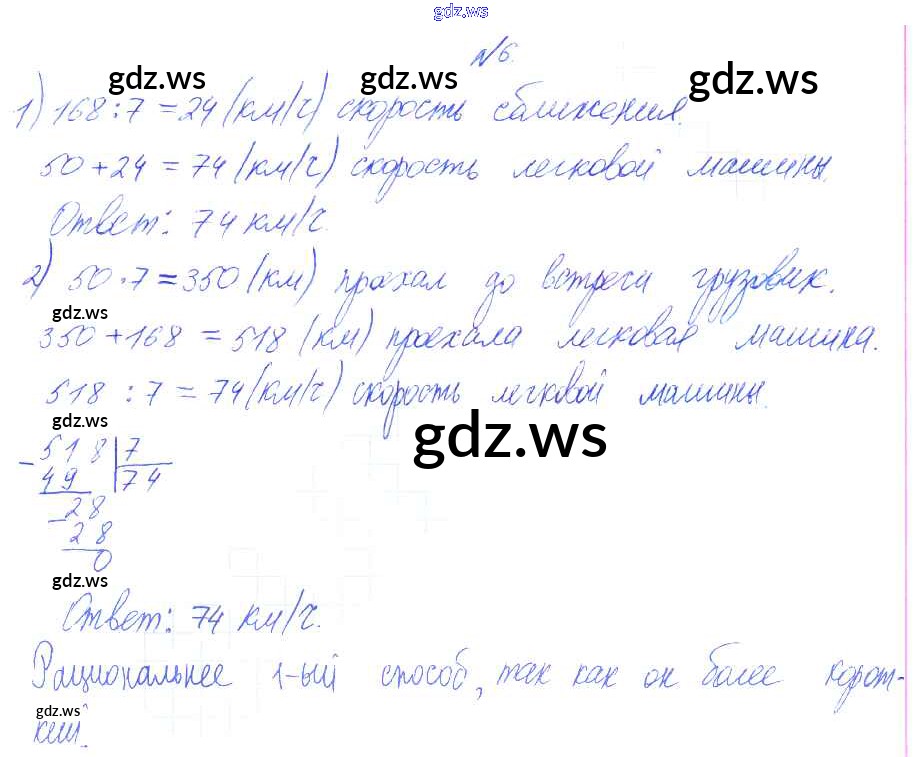 gdz.ws
№6.
gdz.ws gdz.ws gdz.ws
1) 168 : 7 = 24 (км/ч) скорость сближения.
50 + 24 = 74 (км/ч) скорость легковой машины.
Ответ: 74 км/ч.
2) 50 · 7 = 350 (км) проехал до встречи грузовик.
gdz.ws
350 + 168 = 518 (км) проехала легковая машина.
518 : 7 = 74 (км/ч) скорость легковой машины.
gdz.ws gdz.ws
- 518 | 7
49 | 74
- 28
28
0
gdz.ws
Ответ: 74 км/ч.
Рациональнее 1-ый способ, так как он более корот-
gdz.ws
кий.